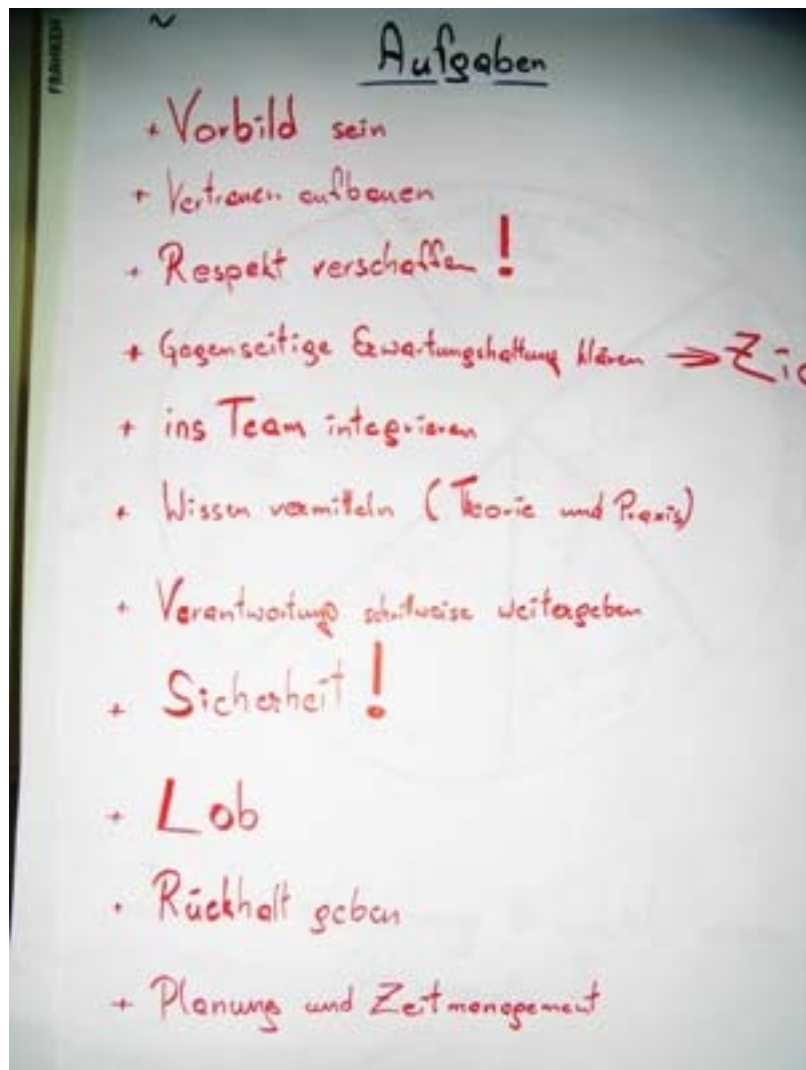 FRANKEN
Aufgaben
+ Vorbild sein
+ Vertrauen aufbauen
+ Respekt verschaffen !
+ Gegenseitige Erwartungshaltung klären → Zie
+ ins Team integrieren
+ Wissen vermitteln (Theorie und Praxis)
+ Verantwortung schrittweise weitergeben
+ Sicherheit !
+ Lob
+ Rückhalt geben
+ Planung und Zeitmanagement